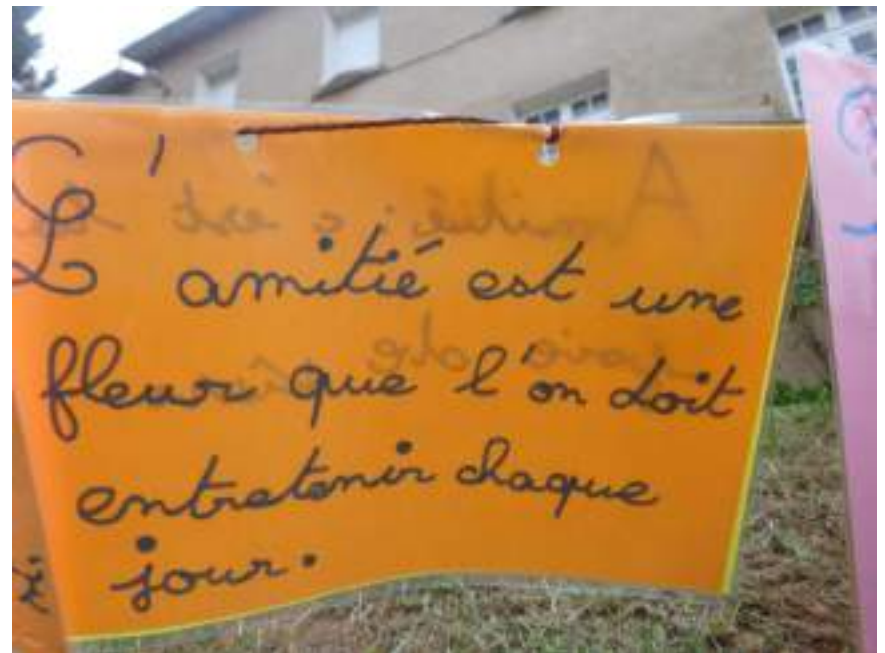 L'amitié est une
fleur que l'on doit
entretenir chaque
jour.